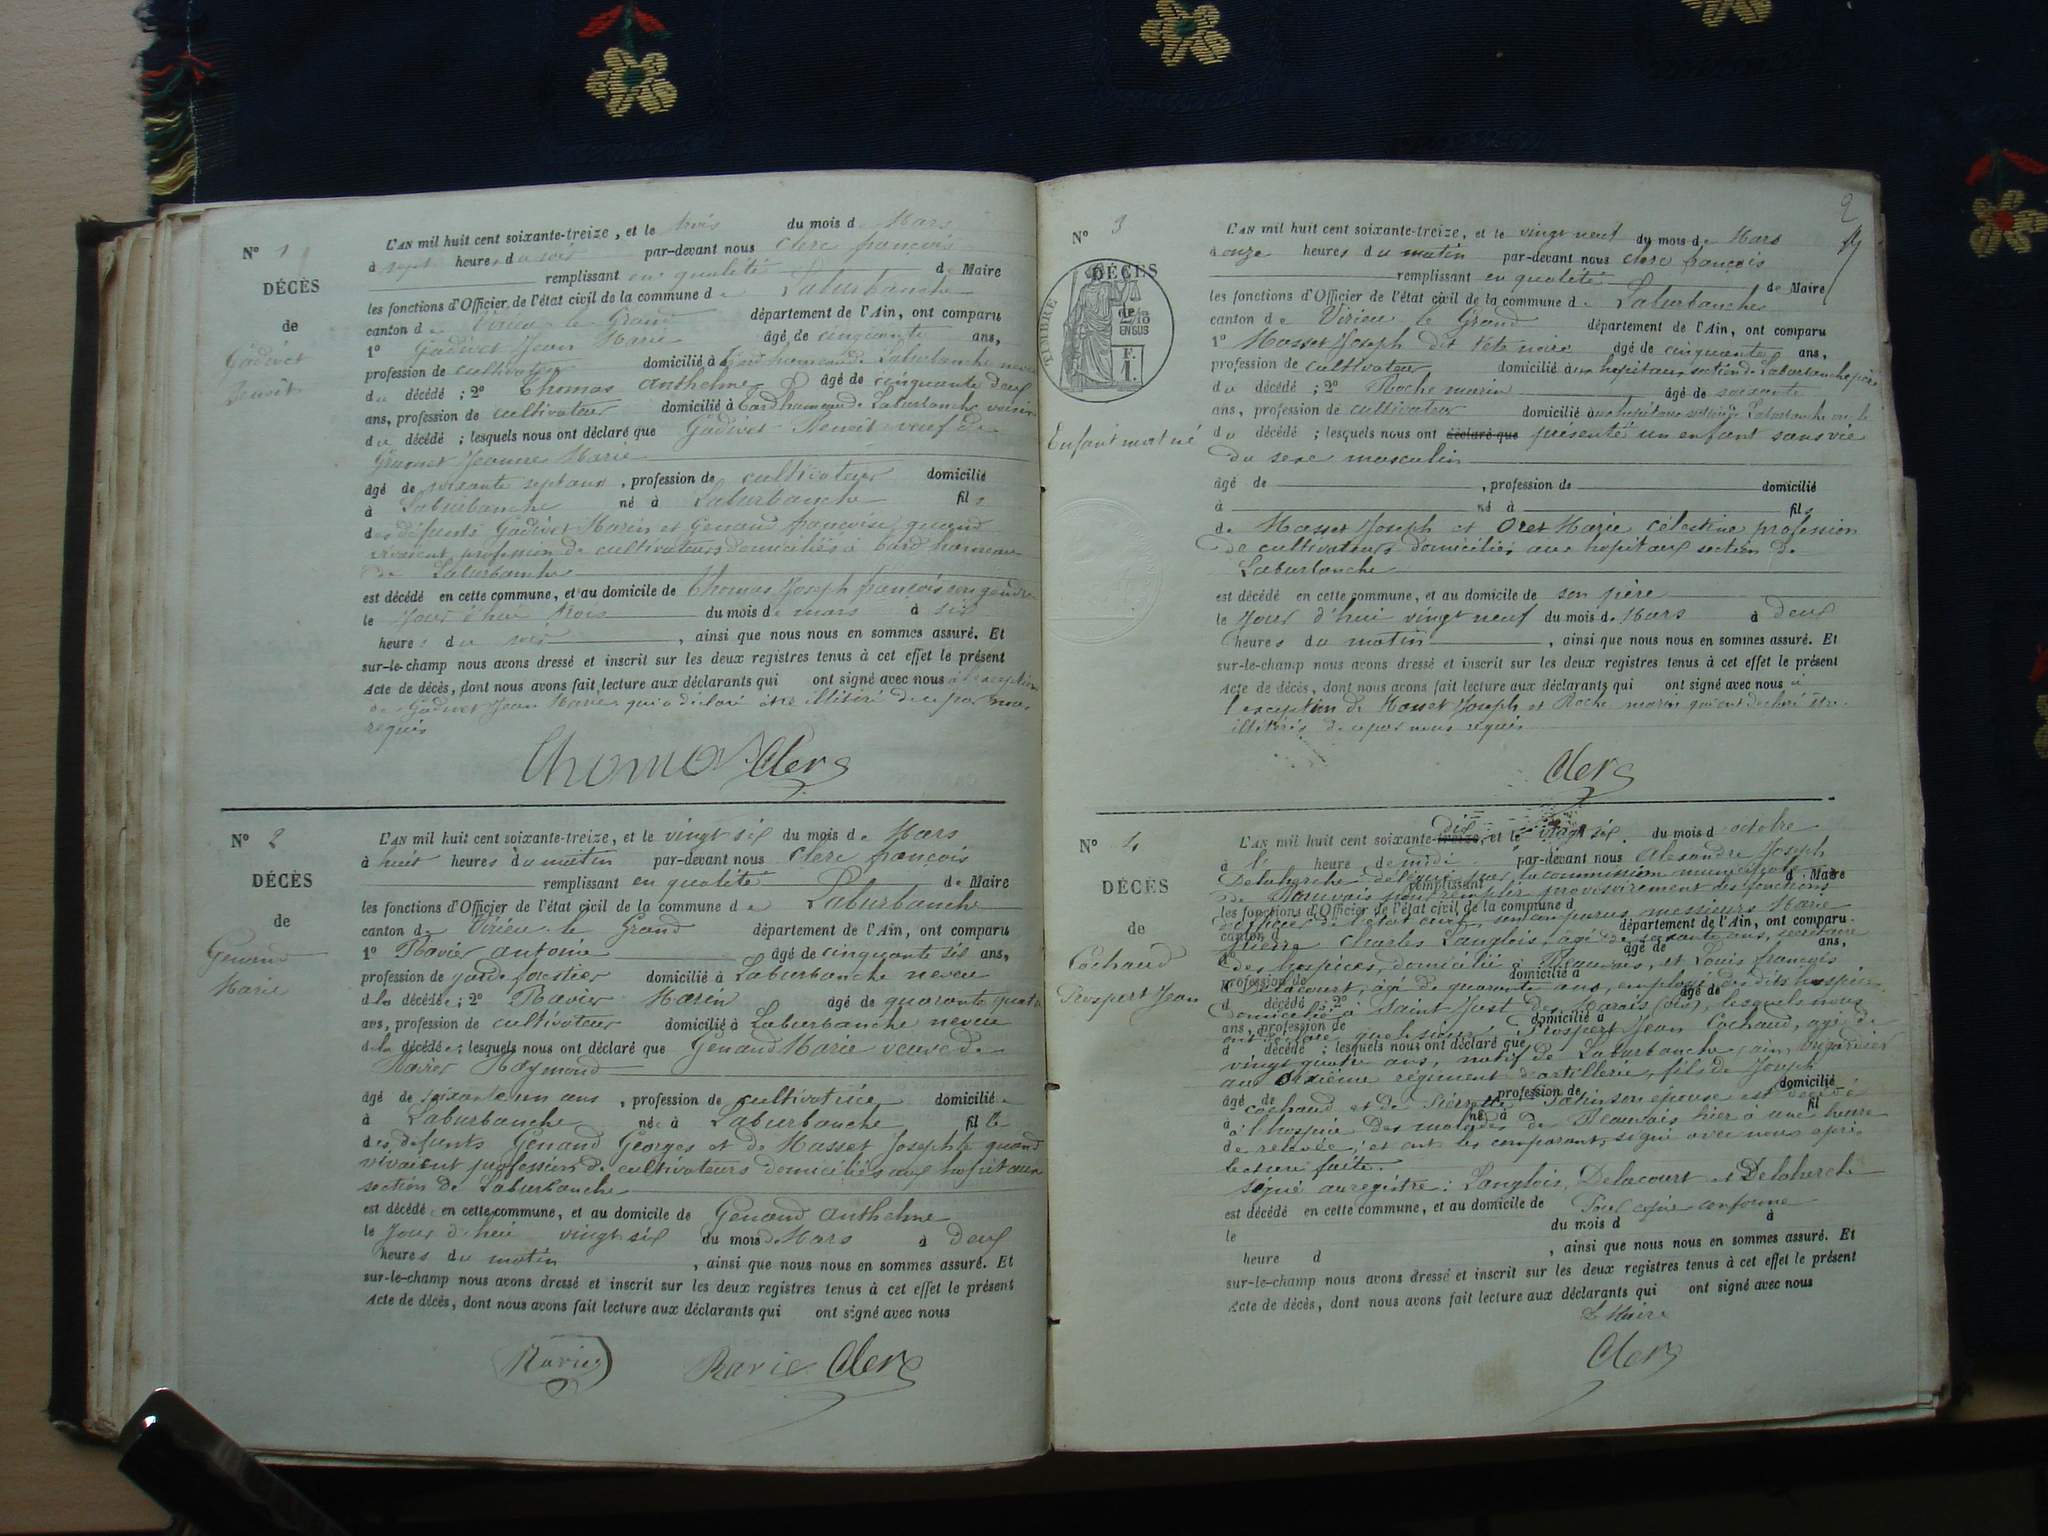 N° 1
DÉCÈS
de
Gadivet
Benoit
L'AN mil huit cent soixante-treize, et le trois du mois de Mars
à sept heures du soir par-devant nous Clerc françois
remplissant en qualité de Maire
les fonctions d'Officier de l'état civil de la commune de Laburbanche
canton de Virieu le Grand département de l'Ain, ont comparu
1° Gadivet Jean Marie âgé de cinquante ans,
profession de cultivateur domicilié à hameau de Laburbanche neveu
du décédé ; 2° Thomas Anthelme âgé de cinquante deux
ans, profession de cultivateur domicilié à hameau de Laburbanche voisin
du décédé ; lesquels nous ont déclaré que Gadivet Benoit veuf de
Jeanne Marie
âgé de soixante sept ans, profession de cultivateur domicilié
à Laburbanche né à Laburbanche fils
des défunts Gadivet Marin et Genaud françoise quand
vivaient profession de cultivateurs domiciliés à hameau
de Laburbanche
est décédé en cette commune, et au domicile de Thomas Joseph françois son gendre
le Jour d'hui trois du mois de mars à six
heures du soir, ainsi que nous nous en sommes assuré. Et
sur-le-champ nous avons dressé et inscrit sur les deux registres tenus à cet effet le présent
Acte de décès, dont nous avons fait lecture aux déclarants qui ont signé avec nous à l'exception
de Gadivet Jean Marie qui a déclaré être illitéré de ce par nous
requis
Thomas Clerc
N° 2
DÉCÈS
de
Genaud
Marie
L'AN mil huit cent soixante-treize, et le vingt six du mois de Mars
à huit heures du matin par-devant nous Clerc françois
remplissant en qualité de Maire
les fonctions d'Officier de l'état civil de la commune de Laburbanche
canton de Virieu le Grand département de l'Ain, ont comparu
1° Ravier antoine âgé de cinquante six ans,
profession de garde forestier domicilié à Laburbanche neveu
de la décédée ; 2° Ravier Marin âgé de quarante quatre
ans, profession de cultivateur domicilié à Laburbanche neveu
de la décédée ; lesquels nous ont déclaré que Genaud Marie veuve de
Ravier Raymond
âgé de soixante un ans, profession de cultivatrice domiciliée
à Laburbanche née à Laburbanche fille
des défunts Genaud Georges et de Masset Josephte quand
vivaient profession de cultivateurs domiciliés aux hopitaux
section de Laburbanche
est décédé en cette commune, et au domicile de Genaud Anthelme
le Jour d'hui vingt six du mois de Mars à deux
heures du matin, ainsi que nous nous en sommes assuré. Et
sur-le-champ nous avons dressé et inscrit sur les deux registres tenus à cet effet le présent
Acte de décès, dont nous avons fait lecture aux déclarants qui ont signé avec nous
Ravier Ravie Clerc
2
N° 3
DÉCÈS
de
TIMBRE
EN SUS
F.
1.
Enfant mort né
L'AN mil huit cent soixante-treize, et le vingt neuf du mois de Mars
à onze heures du matin par-devant nous Clerc françois
remplissant en qualité de Maire
les fonctions d'Officier de l'état civil de la commune de Laburbanche
canton de Virieu le Grand département de l'Ain, ont comparu
1° Masset Joseph dit tête noire âgé de cinquante ans,
profession de cultivateur domicilié aux hopitaux section de Laburbanche père
du décédé ; 2° Roche marin âgé de soixante
ans, profession de cultivateur domicilié aux hopitaux section de Laburbanche oncle
du décédé ; lesquels nous ont déclaré que présenté un enfant sans vie
du sexe masculin
âgé de , profession de domicilié
à né à fils
de Masset Joseph et Oret Marie célestine profession
de cultivateurs domiciliés aux hopitaux section de
Laburbanche
est décédé en cette commune, et au domicile de son père
le Jour d'hui vingt neuf du mois de Mars à deux
heures du matin, ainsi que nous nous en sommes assuré. Et
sur-le-champ nous avons dressé et inscrit sur les deux registres tenus à cet effet le présent
Acte de décès, dont nous avons fait lecture aux déclarants qui ont signé avec nous à
l'exception de Masset Joseph et Roche marin qui ont déclaré être
illitérés de ce par nous requis
Clerc
N° 4
DÉCÈS
de
Cochaud
Prospert Jean
L'AN mil huit cent soixante-treize dix, et le vingt six du mois d octobre
à l' heure de midi par-devant nous Alexandre Joseph
Delaherche délégué par la commission municipale
remplissant d Maire
de Beauvais pour remplir provisoirement des fonctions
les fonctions d'Officier de l'état civil de la commune d
d'officier de l'état civil, sont comparus messieurs Marie
canton d département de l'Ain, ont comparu
Pierre Charles Langlois, âgé de soixante ans, secrétaire
1° âgé de ans,
des hospices, domicilié à Beauvais, et Louis françois
profession de domicilié à
Delacourt, âgé de quarante ans, employé des dits hospices
d décédé ; 2° âgé de
domicilié à Saint Just des Marais (oise), lesquels nous
ans, profession de domicilié à
ont déclaré que le sieur Prospert Jean Cochaud, âgé de
d décédé ; lesquels nous ont déclaré que
vingt quatre ans, natif de Laburbanche, ain, brigadier
au onzième régiment d'artillerie, fils de Joseph
âgé de profession de domicilié
Cochaud et de Pierrette son épouse est décédé
à né à fil
à l'hospice des malades de Beauvais hier à une heure
de relevée, et ont les comparants signé avec nous après
lecture faite.
Signé au registre : Langlois, Delacourt et Delaherche
est décédé en cette commune, et au domicile de Pour copie conforme
le du mois d à
heure d , ainsi que nous nous en sommes assuré. Et
sur-le-champ nous avons dressé et inscrit sur les deux registres tenus à cet effet le présent
Acte de décès, dont nous avons fait lecture aux déclarants qui ont signé avec nous
Le Maire
Clerc